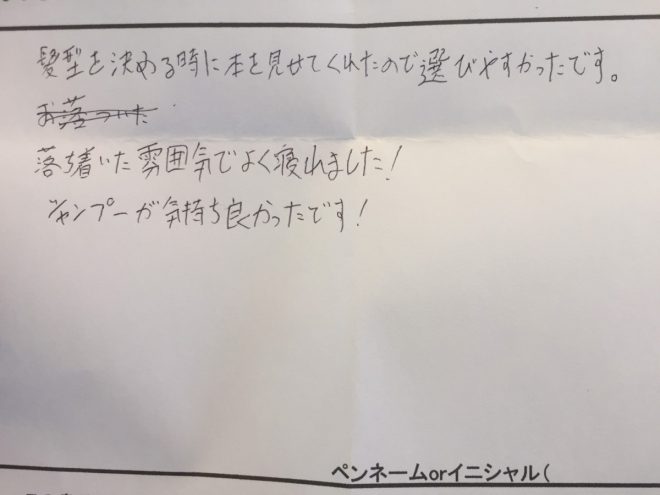 髪型を決める時に本を見せてくれたので選びやすかったです。
お落ついた
落ち着いた雰囲気でよく寝れました!
シャンプーが気持ち良かったです!
ペンネームorイニシャル(